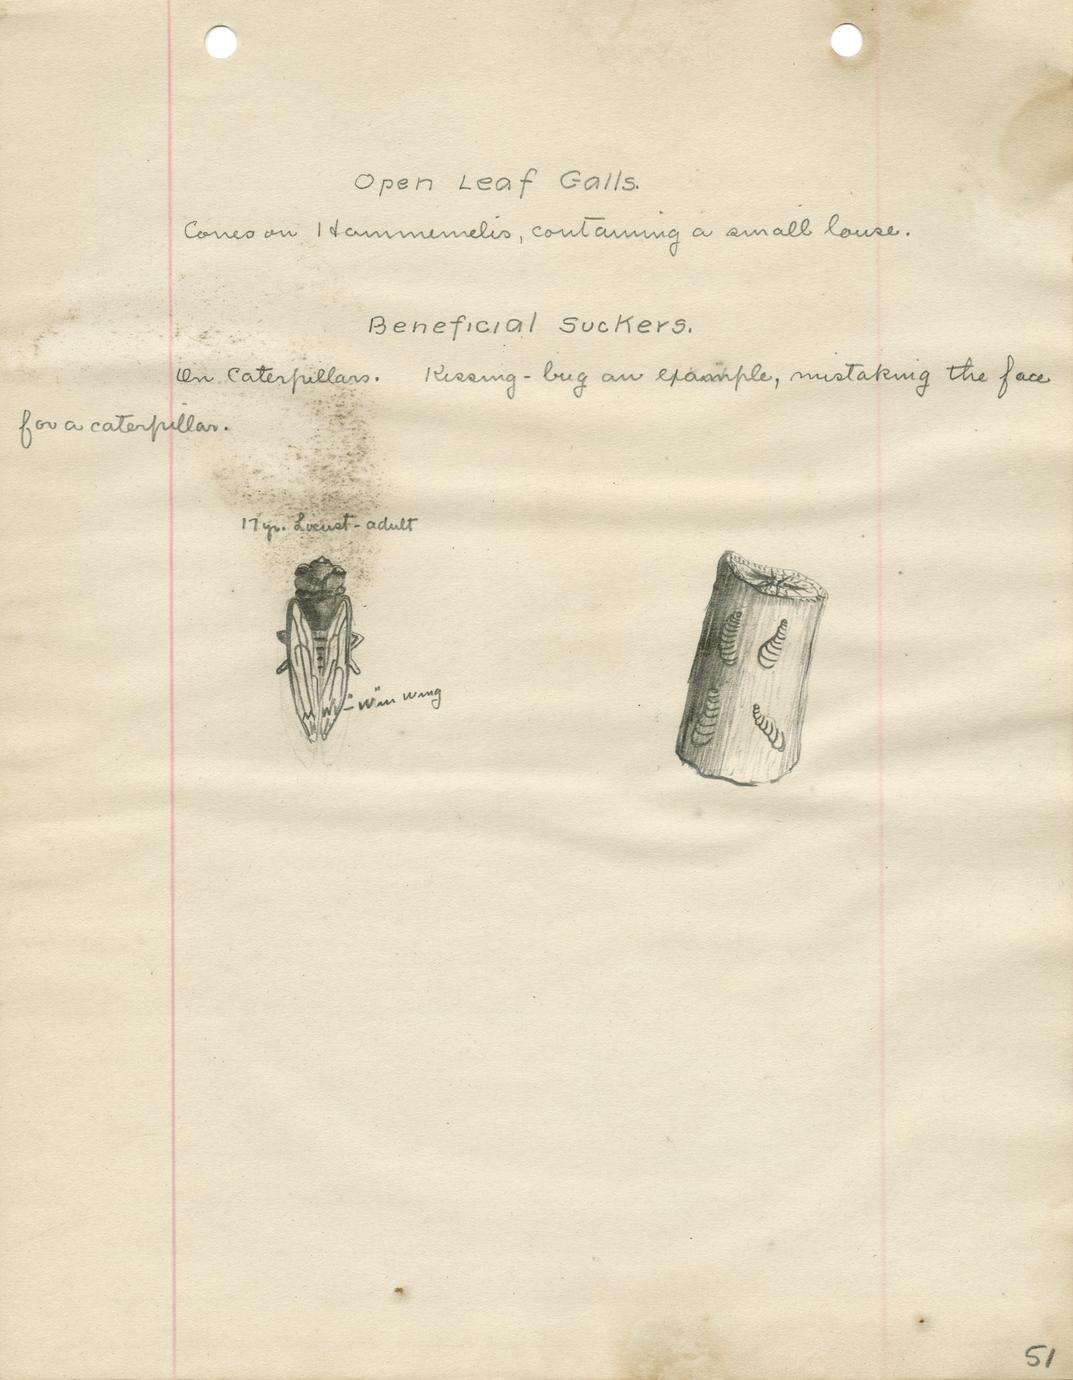 Open Leaf Galls.
Cones on Hammemelis, containing a small louse.
Beneficial Suckers.
On Caterpillars. Kissing-bug an example, mistaking the face
for a caterpillar.
17 yr. Locust - adult
"W" in wing
51